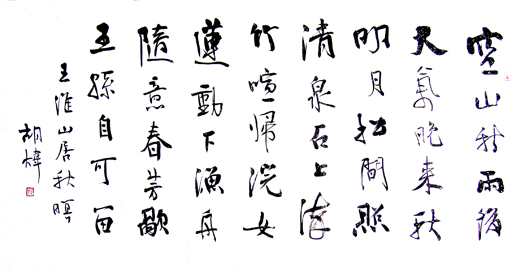 空山新雨後
天氣晚來秋
明月松間照
清泉石上流
竹喧歸浣女
蓮動下漁舟
隨意春芳歇
王孫自可留
王維山居秋暝
胡煒